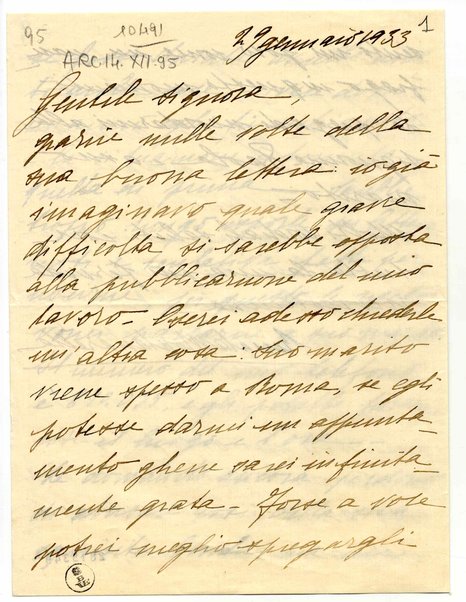 95
10491
1
ARC.14.XII.95
29 gennaio 1933
Gentile Signora,
grazie mille volte della
sua buona lettera: io già
imaginavo quale grave
difficoltà si sarebbe opposta
alla pubblicazione del mio
lavoro - Oserei adesso chiederle
un'altra cosa: Suo marito
viene spesso a Roma, se egli
potesse darmi un appunta-
mento gliene sarei infinita-
mente grata - Forse a voce
potrei meglio spiegargli